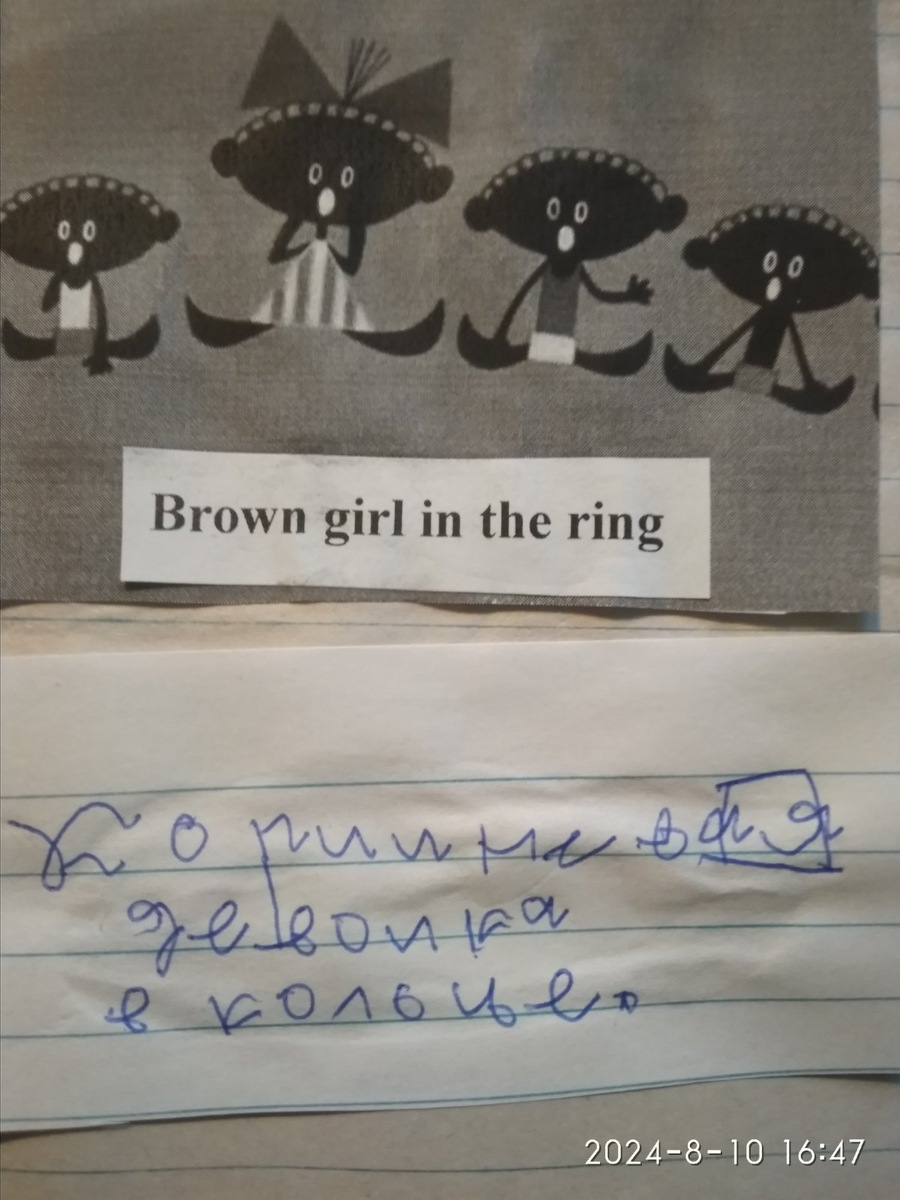 Brown girl in the ring
Коричневая
девочка
в кольце.
2024-8-10 16:47